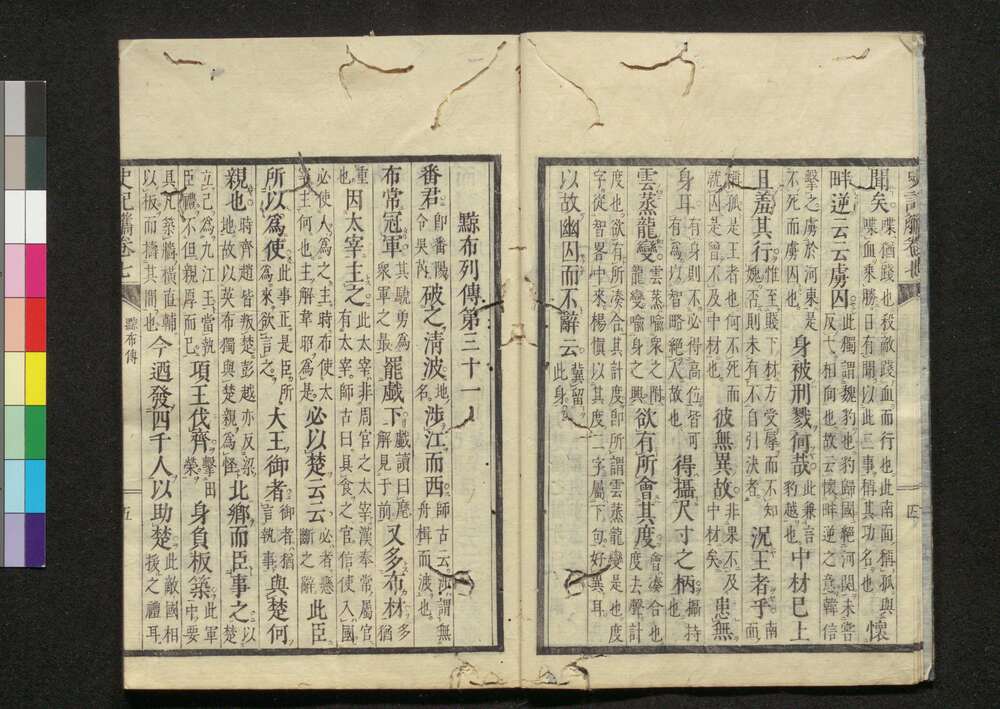 聞矣喋猶踐也殺敵踐血而行也此南面稱孤與喋血乘勝日有聞以此三事稍其功名也懷
畔逆云云虜囚此獨謂魏豹也豹歸國絕河関未嘗反大相向也故云懷畔逆之意韓信
擊之虜於河東是不死而虜囚也身被刑戮何哉此兼言豹越也中材已上
且羞其行惟至賤下材方受辱而不知媿否則未有不自引決者況王者乎南面
稱孤是王者也何不死而就囚是曾不及中材也彼無異故非果不及中材矣患無
身耳有身則不必得高位皆可有為以智略絕人故也得攝尺寸之柄攝持也
雲蒸龍變雲蒸喻衆之附龍變喻身之興欲有所會其度會湊合也度去聲計
度也欲有所湊合其計度即所謂雲蒸龍變是也度字從智畧中來楊慎以其度二字屬下句好異耳
以故幽囚而不辭云冀留此身
黥布列傳第三十一
番君即番陽令吳芮破之清波地名涉江而西師古云涉謂無舟楫而渡也
布常冠軍其驍勇為衆軍之最罷戲下戲讀曰麾解見于前又多布材多猶
重也因太宰主之此太宰非周官之太宰漢奉常屬官有太宰師古曰具食之官信使入國
必使人為之主時布使太宰主何也主解韋耶為是必以楚云云必者懸斷之辭此臣
所以為使此事正是臣所為來欲言之大王御者御者猶言執事與楚何
親也時齊趙皆叛楚彭越亦反梁地故以英布獨與楚親為怪北鄉而臣事之以楚
立己為九江王當執臣禮不但親厚而已項王伐齊擊田榮身負板築此軍中要
具凡築牆橫直輔以板而擣其間也今迺發四千人以助楚此敵國相援之禮耳
黥布傳
五